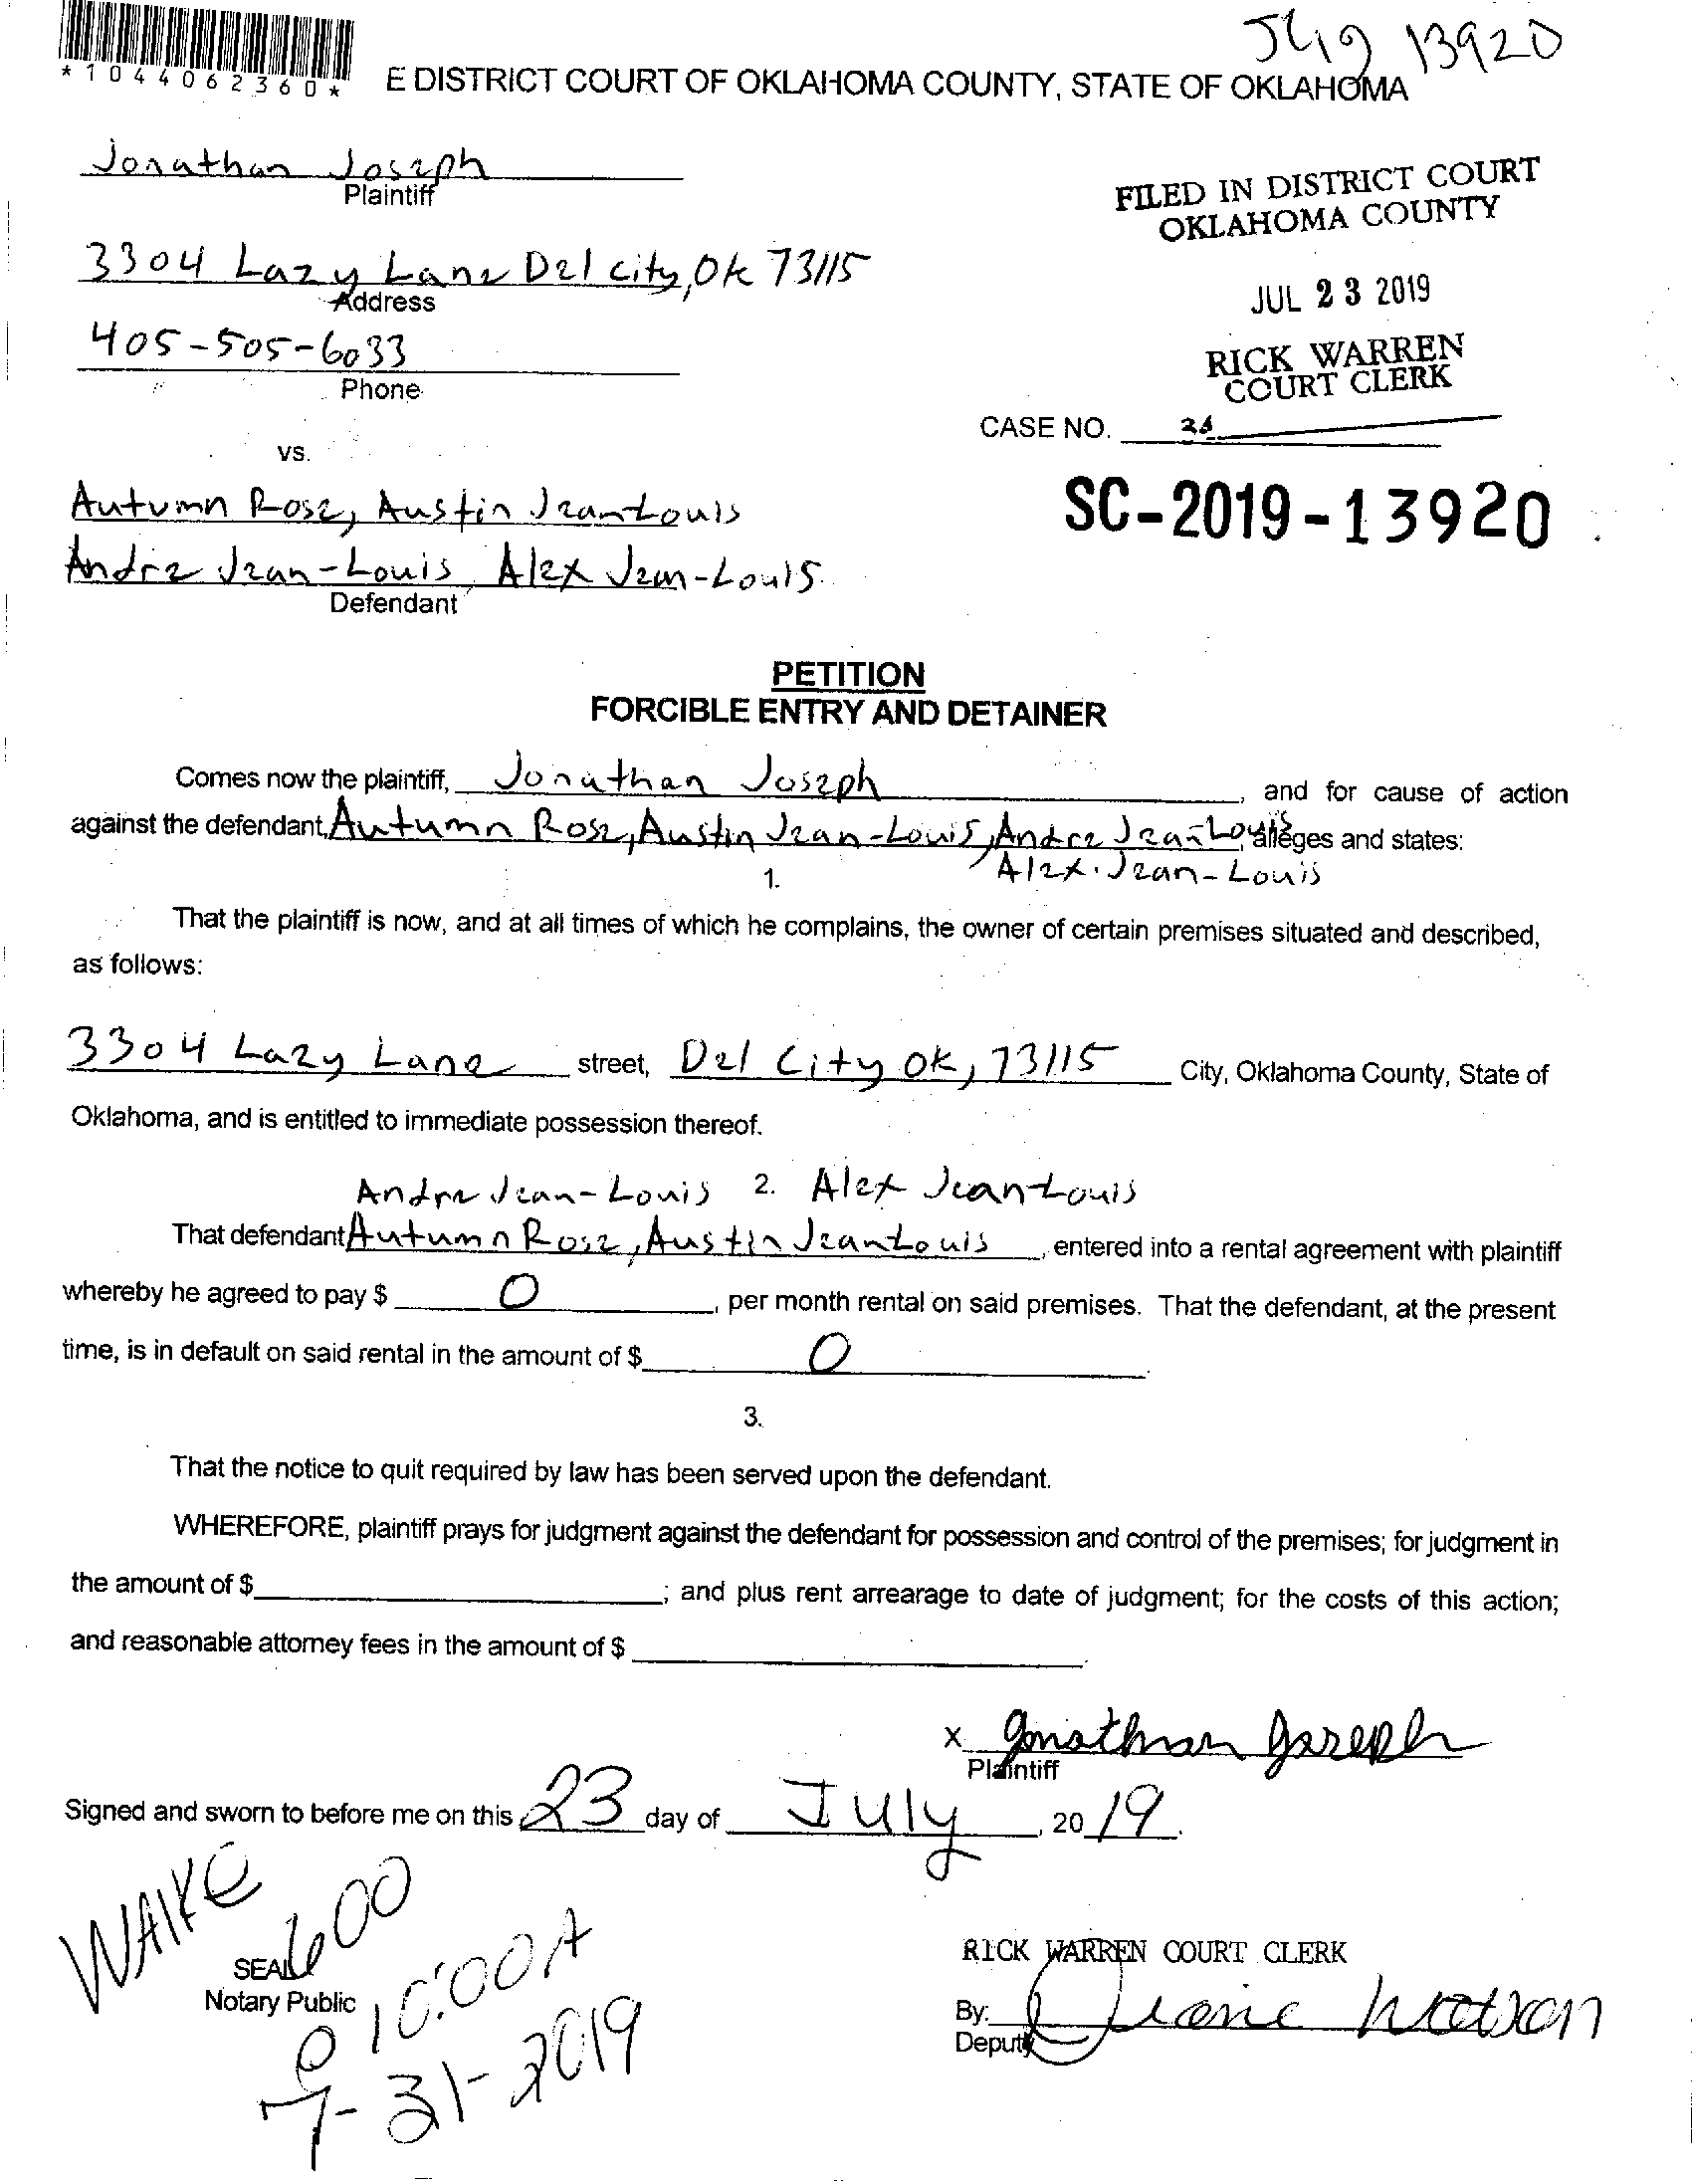 JU19 13920
*1044062360*
E DISTRICT COURT OF OKLAHOMA COUNTY, STATE OF OKLAHOMA
Jonathan Joseph
Plaintiff
FILED IN DISTRICT COURT
OKLAHOMA COUNTY
3304 Lazy Lane Del city, Ok 73115
Address
JUL 23 2019
405-505-6033
Phone
RICK WARREN
COURT CLERK
CASE NO.
vs.
Autumn Rose, Austin Jean-Louis
SC-2019-13920
Andre Jean-Louis Alex Jean-Louis
Defendant
PETITION
FORCIBLE ENTRY AND DETAINER
Comes now the plaintiff, Jonathan Joseph, and for cause of action
against the defendant, Autumn Rose, Austin Jean-Louis, Andre Jean-Louis, alleges and states:
Alex Jean-Louis
1.
That the plaintiff is now, and at all times of which he complains, the owner of certain premises situated and described,
as follows:
3304 Lazy Lane street, Del City OK, 73115 City, Oklahoma County, State of
Oklahoma, and is entitled to immediate possession thereof.
Andre Jean-Louis 2. Alex Jean-Louis
That defendant Autumn Rose, Austin Jean-Louis, entered into a rental agreement with plaintiff
whereby he agreed to pay $ 0, per month rental on said premises. That the defendant, at the present
time, is in default on said rental in the amount of $ 0.
3.
That the notice to quit required by law has been served upon the defendant.
WHEREFORE, plaintiff prays for judgment against the defendant for possession and control of the premises; for judgment in
the amount of $ ; and plus rent arrearage to date of judgment; for the costs of this action;
and reasonable attorney fees in the amount of $ .
x Jonathan Joseph
Plaintiff
Signed and sworn to before me on this 23 day of July, 20 19.
WAIKE
600
SEAL
Notary Public
@ 10:00A
7-31-2019
RICK WARREN COURT CLERK
By:
Deputy